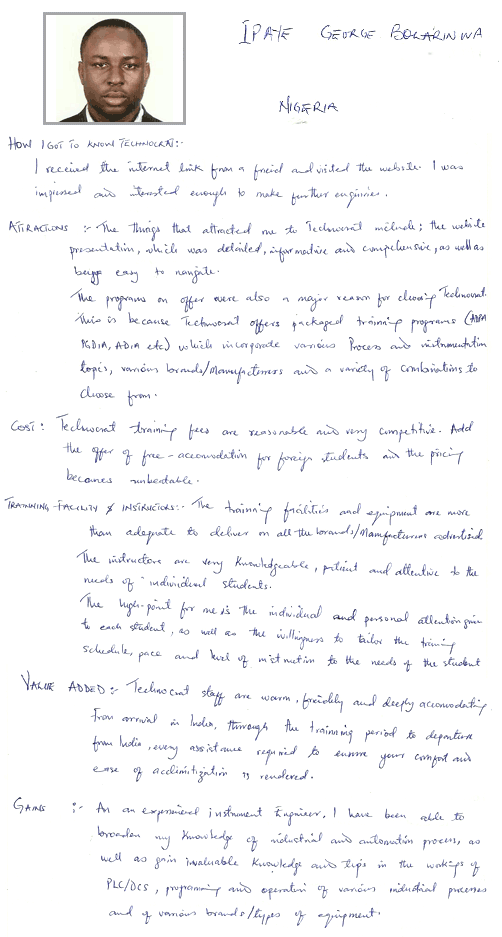 IPAYE GEORGE BOLARINWA
NIGERIA
HOW I GOT TO KNOW TECHNOCRAT:-
I received the internet link from a freid and visited the website. I was
impressed and interested enough to make further enquiries.
ATTRACTIONS :- The things that attracted me to Technocrat include; the website
presentation, which was detailed, informative and comprehensive, as well as
being easy to navigate.
The programs on offer were also a major reason for choosing Technocrat.
This is because Technocrat offers packaged training programs (ADPA
PGDIA, ADIA etc) which incorporate various Process and instrumentation
topics, various brands/Manufacturers and a variety of combinations to
choose from.
COST: Technocrat training fees are reasonable and very competitive. Add
the offer of free-accomodation for foreign students and the pricing
becomes unbeatable.
TRAINNING-FACILITY & INSTRUCTORS:- The training facilities and equipment are more
than adequate to deliver on all the brands/Manufacturers advertised
The instructors are very knowledgeable, patient and attentive to the
needs of individual students.
The high-point for me is the individual and personal attention given
to each student, as well as the willingness to tailor the training
schedule, pace and level of instruction to the needs of the student
VALUE ADDED :- Technocrat staff are warm, freidly and deeply accomodating.
From arrival in India, through the trainning period to departure
from India, every assistance required to ensure your comfort and
ease of acclimitization is rendered.
GAINS :- As an experienced instrument Engineer, I have been able to
broaden my knowledge of industrial and automation process, as
well as gain invaluable knowledge and tips in the workings of
PLC/DCS, programing and operation of various industrial processes
and of various brands/types of equipment.